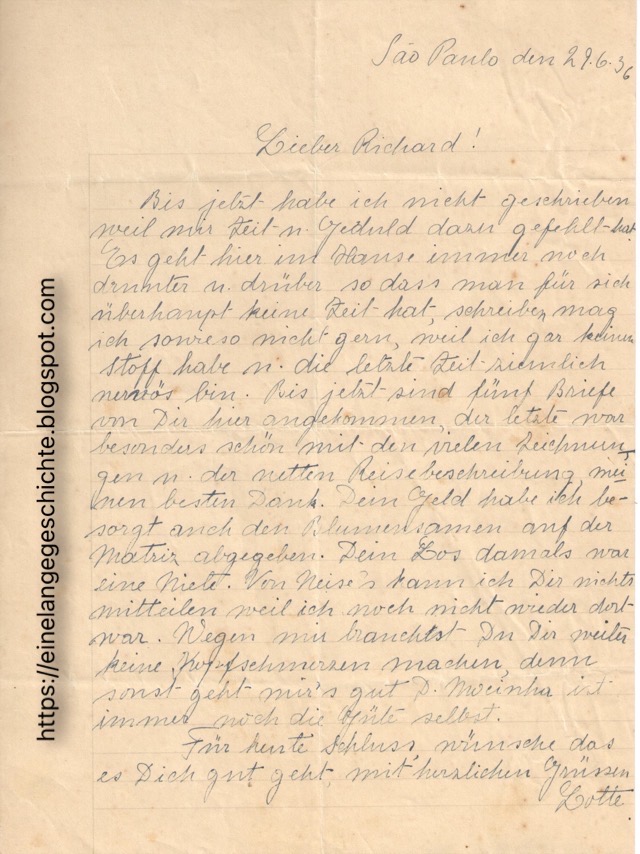 São Paulo den 29.6.36
Lieber Richard!
Bis jetzt habe ich nicht geschrieben
weil mir Zeit u. Geduld dazu gefehlt hat
Es geht hier im Hause immer noch
drunter u. drüber so dass man für sich
überhaupt keine Zeit hat, schreiben mag
ich sowieso nicht gern, weil ich gar keinen
Stoff habe u. die letzte Zeit ziemlich
nervös bin. Bis jetzt sind fünf Briefe
von Dir hier angekommen, der letzte war
besonders schön mit den vielen Zeichnun-
gen u. der netten Reisebeschreibung, mei-
nen besten Dank. Dein Geld habe ich be-
sorgt auch den Blumensamen auf der
Matriz abgegeben. Dein Los damals war
eine Niete. Von Neise's kann ich Dir nichts
mitteilen weil ich noch nicht wieder dort
war. Wegen mir brauchst Du Dir weiter
keine Kopfschmerzen machen, denn
sonst geht mir's gut D. Mocinha ist
immer noch die Güte selbst.
Für heute Schluss, wünsche das
es Dich gut geht, mit herzlichen Grüssen
Lotte.
https://einelangegeschichte.blogspot.com